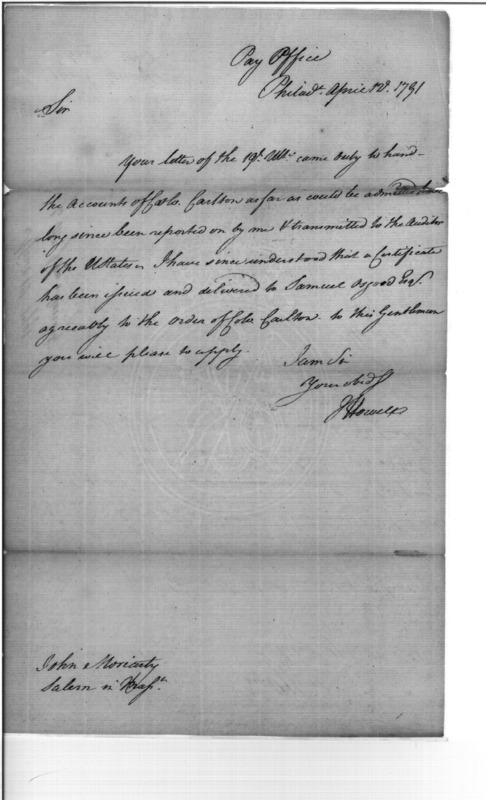 Pay Office
Philada. April 12. 1791
Sir
Your letter of the 19th. Ulto. came duly to hand—
the Accounts of Colo. Carlton as far as could be admitted have
long since been reported on by me & transmitted to the Auditor
of the UStates. I have since understood that a Certificate
has been issued and delivered to Samuel Osgood Esqr.
agreeably to the order of Colo. Carlton to this Gentleman
you will please to apply.
I am Sir
Your
J Howell
John Moriarty
Salem in Massts.